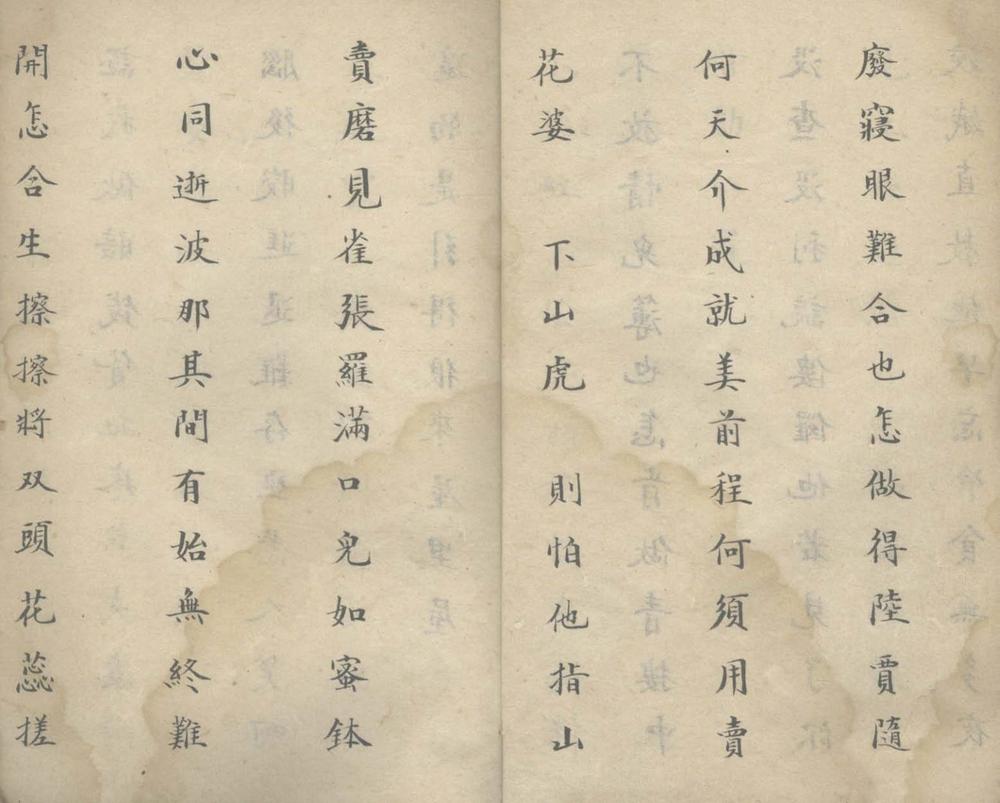 廢寢眼難合也怎做得陸賈隨
何天介成就美前程何須用賣
花婆　下山虎　則怕他指山
賣磨見雀張羅滿口兒如蜜鉢
心同逝波那其間有始無終難
開怎含生擦擦將双頭花蕊搓